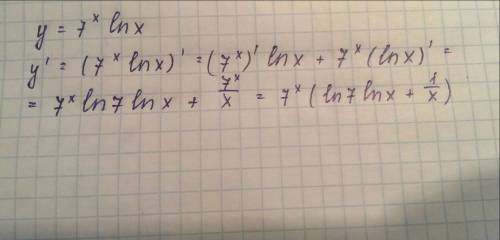 y = 7^x ln x
y' = (7^x ln x)' = (7^x)' ln x + 7^x (ln x)' =
= 7^x ln 7 ln x + 7^x/x = 7^x (ln 7 ln x + 1/x)